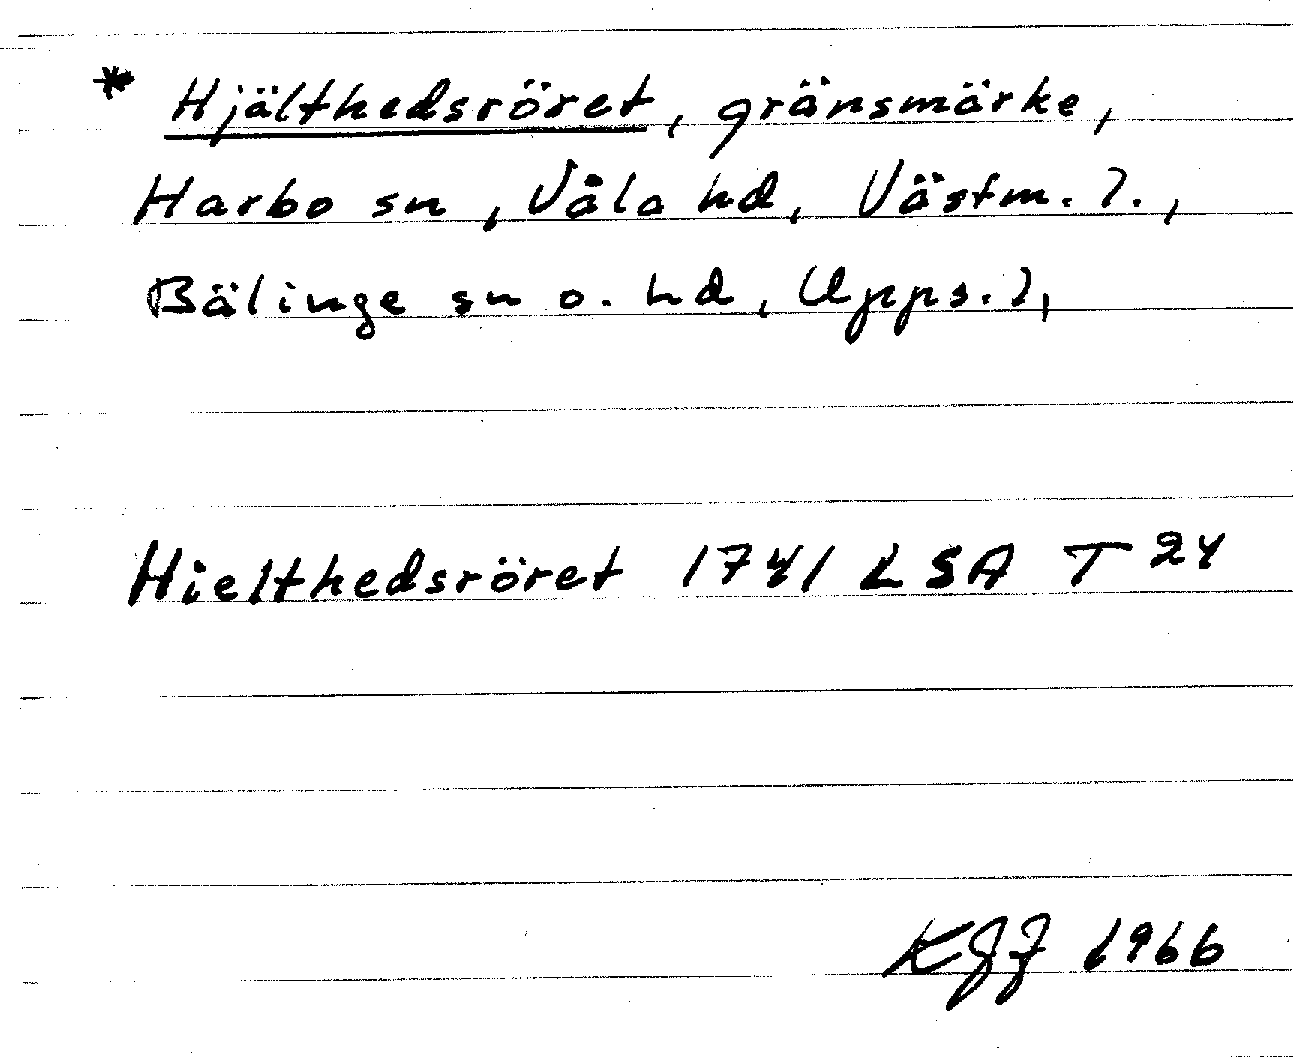 * Hjälthedsröret, gränsmärke,
Harbo sn, Våla hd, Västm. l.,
Bälinge sn o. hd, Upps. l,
Hielthedsröret 1741 LSA T 24
1966